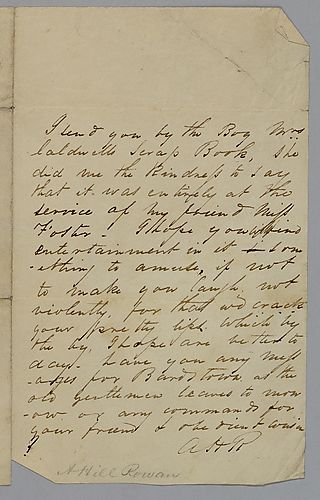 I send you by the Boy Mrs
Caldwells Scrap Book, she
did me the Kindness to say
that it was entirely at the
service of my friend Miss
Foster! I hope you will find
entertainment in it - som
-ething to amuse, if not
to make you laugh, not
violently, for that wd crack
your pretty lips which by
the by, I hope are better to
day - have you any mess
-ages for Bardstown, as the
old gentlemen leaves to mor
-ow or any commands for
your friend & obedient cousin
A H R
?
A Hill Rowan